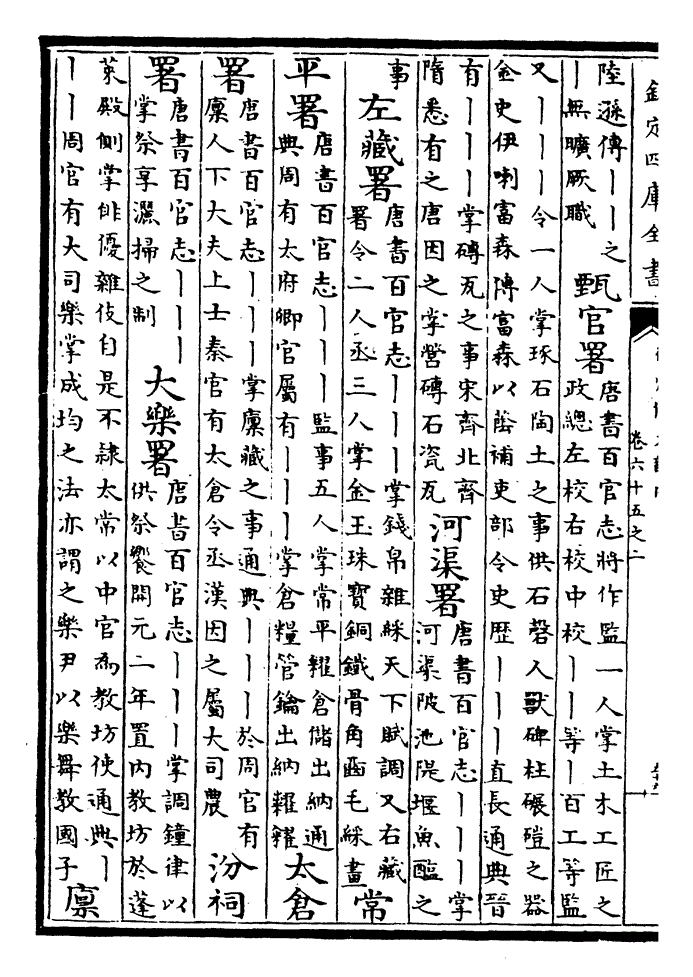 欽定四庫全書
卷六十五之二
陸遜傳｜｜之
｜無曠厥職
甄官署
唐書百官志將作監一人掌土木工匠之
政總左校右校中校｜｜等｜百工等監
又｜｜｜令一人掌琢石陶土之事供石磬人獸碑柱碾磑之器
金史伊喇富森傳富森以蔭補吏部令史歷｜｜｜直長通典晉
有｜｜｜掌磚瓦之事宋齊北齊
隋悉有之唐因之掌營磚石瓷瓦
河渠署
唐書百官志｜｜｜掌
河渠陂池隄堰魚醢之
事
左藏署
唐書百官志｜｜｜掌錢帛雜綵天下賦調又右藏
署令二人丞三人掌金玉珠寶銅鐵骨角齒毛綵畫
常
平署
唐書百官志｜｜｜監事五人掌常平糶倉儲出納通
典周有太府卿官屬有｜｜｜掌倉糧管鑰出納糶糴
太倉
署
唐書百官志｜｜｜掌廩藏之事通典｜｜｜於周官有
廩人下大夫上士秦官有太倉令丞漢因之屬大司農
汾祠
署
唐書百官志｜｜｜
掌祭享灑掃之制
大樂署
唐書百官志｜｜｜掌調鐘律以
供祭饗開元二年置内教坊於蓬
萊殿側掌俳優雜伎自是不隸太常以中官為教坊使通典｜
｜｜周官有大司樂掌成均之法亦謂之樂尹以樂舞教國子
廩